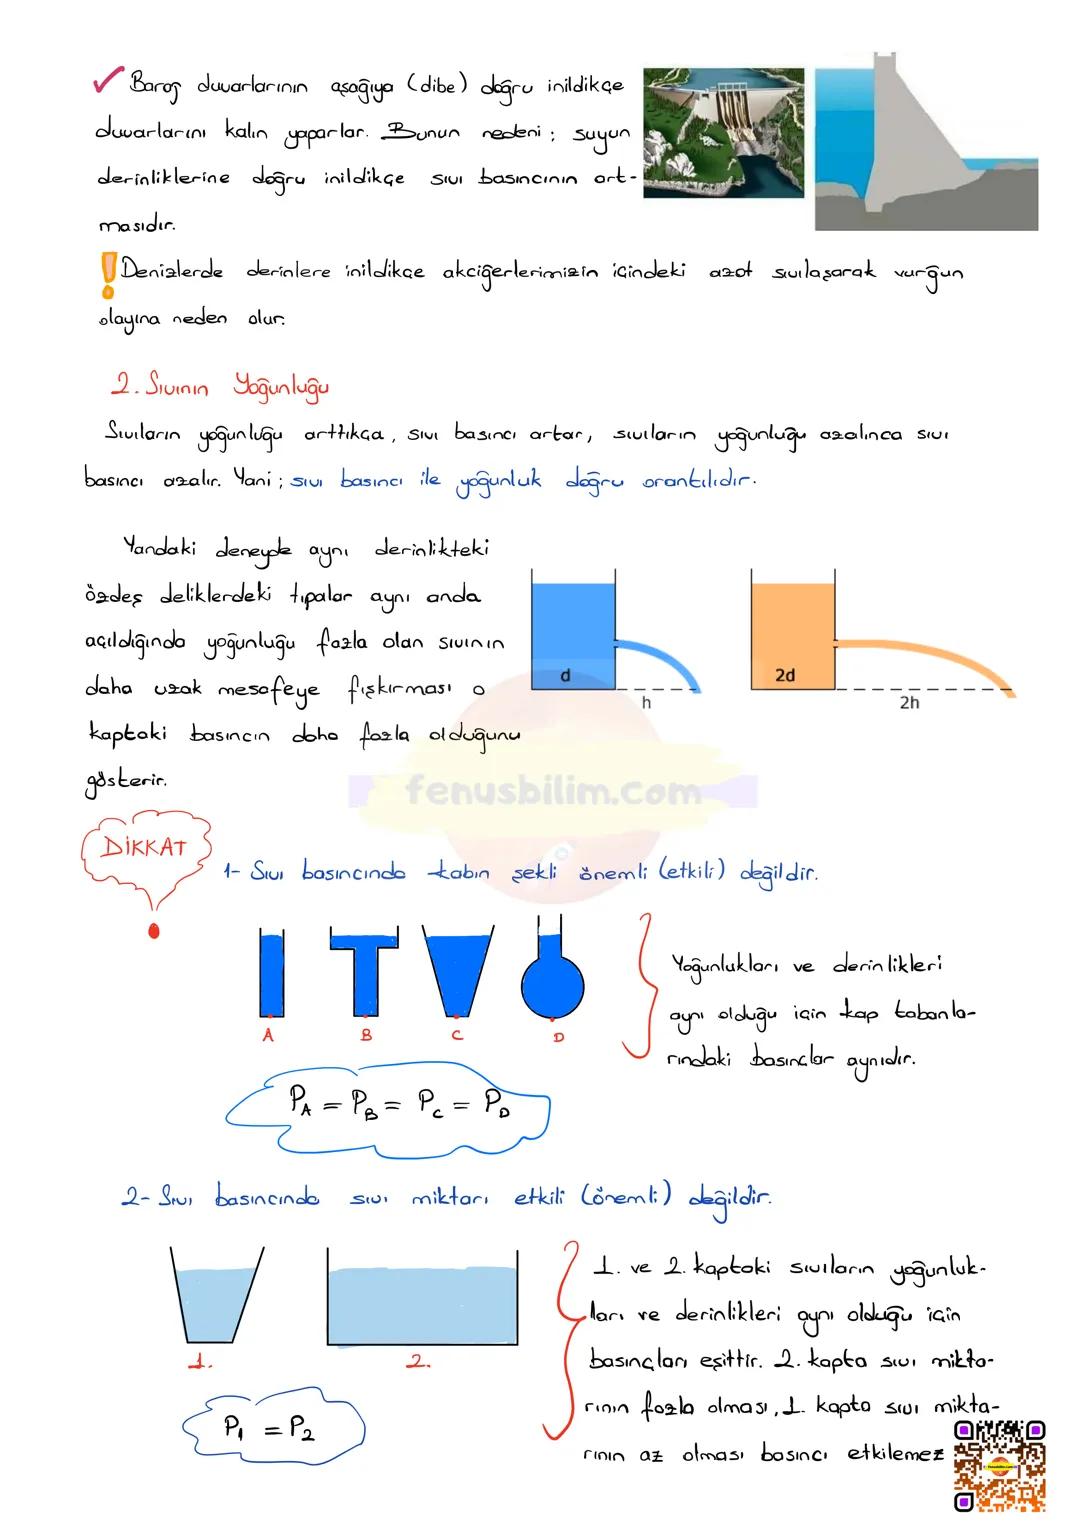 Baraj duvarlarının aşağıya (dibe) doğru inildikçe
duvarlarını kalın yaparlar. Bunun nedeni; suyun
derinliklerine doğru inildikçe sıvı basıncının art-
masıdır.
Denizlerde derinlere inildikçe akciğerlerimizin içindeki azot sıvılaşarak vurgun
olayına neden olur.
2. Sıvının Yoğunluğu
Sıvıların yoğunluğu arttıkça, sıvı basıncı artar, sıvıların yoğunluğu azalınca sıvı
basıncı azalır. Yani; sıvı basıncı ile yoğunluk doğru orantılıdır.
Yandaki deneyde aynı derinlikteki
özdeş deliklerdeki tıpalar aynı anda
açıldığında yoğunluğu fazla olan sıvının
daha uzak mesafeye fışkırması o
kaptaki basıncın daha fazla olduğunu
gösterir.
d
h
2d
2h
fenusbilim.com
DİKKAT
1- Sıvı basıncında kabın şekli önemli (etkili) değildir.
A B C D
Yoğunlukları ve derinlikleri
aynı olduğu için kap tabanla-
rındaki basınçlar aynıdır.
P_A = P_B = P_C = P_D
2- Sıvı basıncında sıvı miktarı etkili (önemli) değildir.
1. 2.
P₁ = P₂
1. ve 2. kaptaki sıvıların yoğunluk-
ları ve derinlikleri aynı olduğu için
basınçları eşittir. 2. kapta sıvı mikta-
rının fazla olması, 1. kapta sıvı mikta-
rının az olması basıncı etkilemez